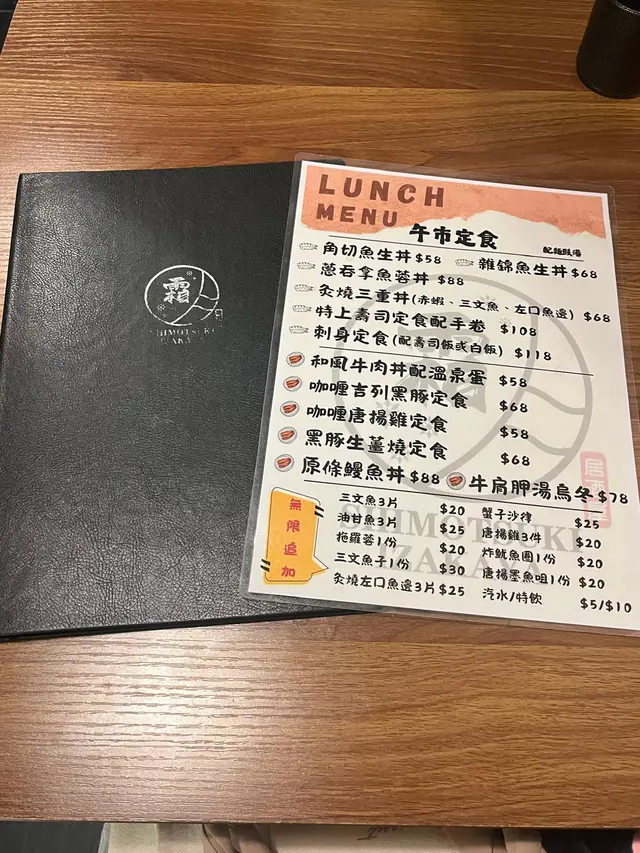 霜月
SHIMOTSUKI
IZAKAYA
LUNCH
MENU
午市定食
配麵豉湯
角切魚生丼 $58 雜錦魚生丼 $68
蔥吞拿魚蓉丼 $88
炙燒三重丼(赤蝦、三文魚、左口魚邊) $68
特上壽司定食配手卷 $108
刺身定食(配壽司飯或白飯) $118
和風牛肉丼配溫泉蛋 $58
咖喱吉列黑豚定食 $68
咖喱唐揚雞定食 $58
黑豚生薑燒定食 $68
原條鰻魚丼 $88 牛肩胛湯烏冬 $78
無限追加
三文魚3片 $20 蟹子沙律 $25
油甘魚3片 $25 唐揚雞3件 $20
拖羅蓉1份 $20 炸魷魚圈1份 $20
三文魚子1份 $30 唐揚墨魚咀1份 $20
炙燒左口魚邊3片 $25 汽水/特飲 $5/$10
霜
居酒
SHIMOTSUKI
IZAKAYA